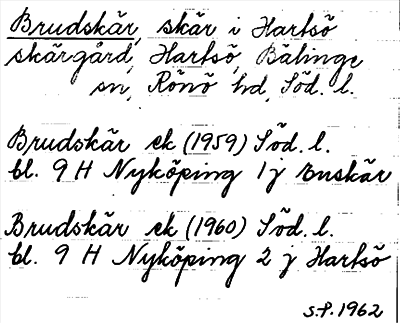 Brudskär, skär i Hartsö
skärgård, Hartsö, Bälinge
sn, Rönö hd, Söd. l.
Brudskär ek (1959) Söd. l.
bl. 9 H Nyköping 1 j Enskär
Brudskär ek (1960) Söd. l.
bl. 9 H Nyköping 2 j Hartsö
S.P. 1962